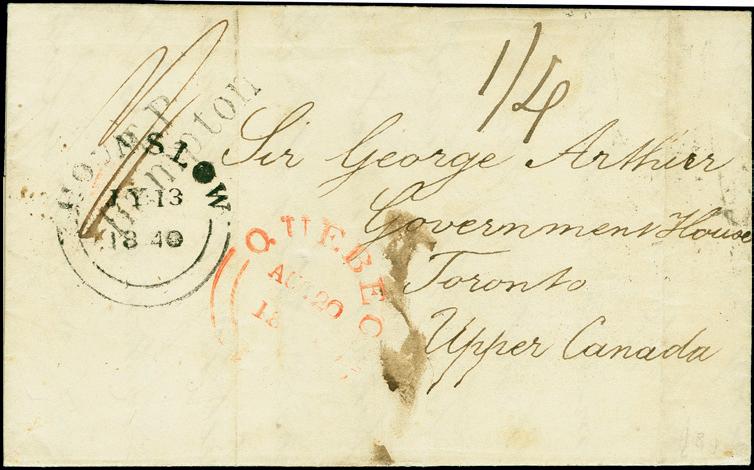 1/4
Sir George Arthur
Government House
Toronto
Upper Canada
HOUNSLOW
JY 13
1840
QUEBEC
AU 20